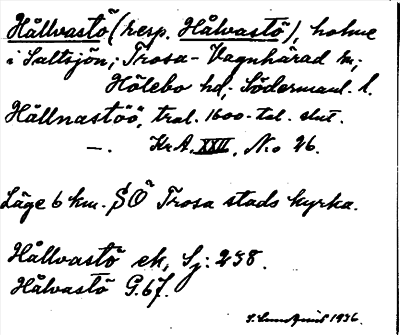 Hållvastö (resp. Hålvastö), holme
i Saltsjön; Trosa-Vagnhärad sn;
Hölebo hd; Södermanl. l.
Hållnastöö, trol. 1600-tal. slut.
—. Kr A. XXII, No 26.
Läge 6 km. SO Trosa stads kyrka.
Hållvastö ek, Sj: 238.
Hålvastö G.67.
1936.